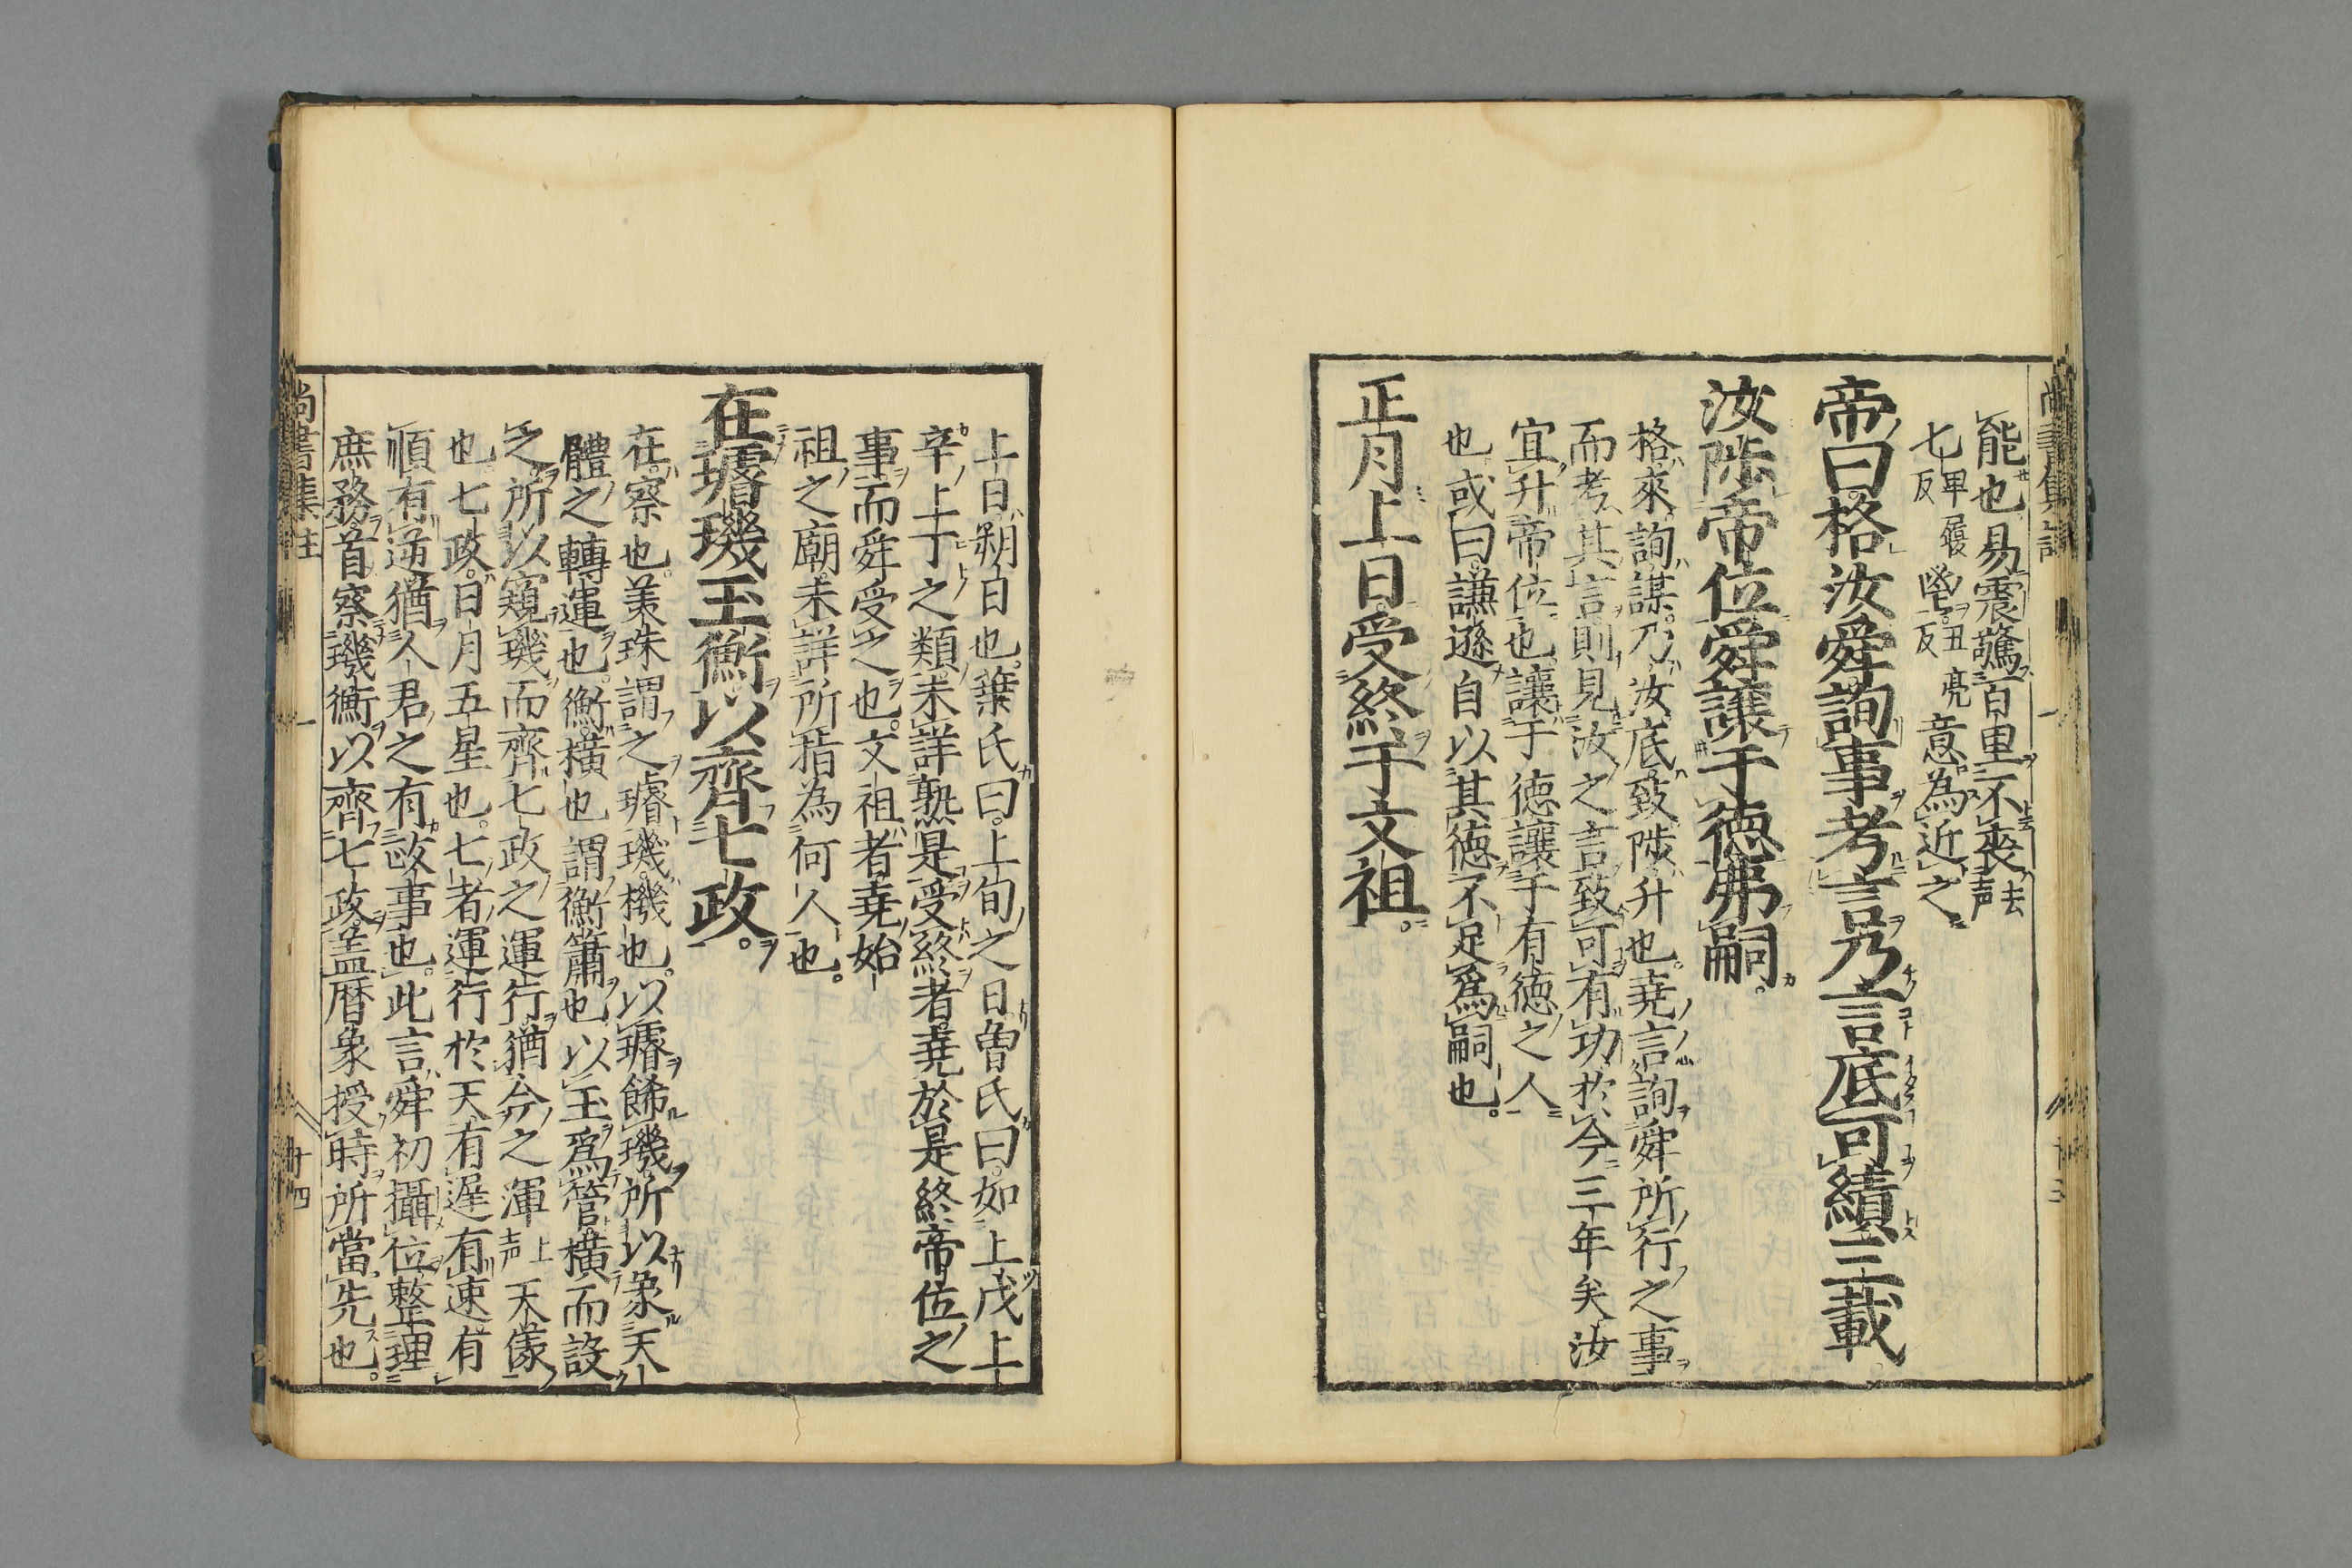 能也易震驚百里不喪去声
七畢履反鬯丑亮反意為近之
帝曰格汝舜詢事考言乃言底可績三載
汝陟帝位舜讓于德弗嗣
格來詢謀乃汝底致陟升也堯言詢舜所行之事
而考其言則見汝之言致可有功於今三年矣汝
宜升帝位也讓于德讓于有德之人
也或曰謙遜自以其德不足爲嗣也
正月上日受終于文祖
上日朔日也葉氏曰上旬之日曽氏曰如上戊上
辛上丁之類未詳熟是受終者堯於是終帝位之
事而舜受之也文祖者堯始
祖之廟未詳所指為何人也
在璿璣玉衡以齊七政
在察也美珠謂之璿璣機也以璿餙璣所以象天
體之轉運也衡横也謂衡簫也以玉爲管横而設
之所以窺璣而齊七政之運行猶今之渾上声天儀
也七政日月五星也七者運行於天有遲有速有
順有逆猶人君之有政事也此言舜初攝位整理
庶務首察璣衡以齊七政盖暦象授時所當先也
尚書集註 一 十四